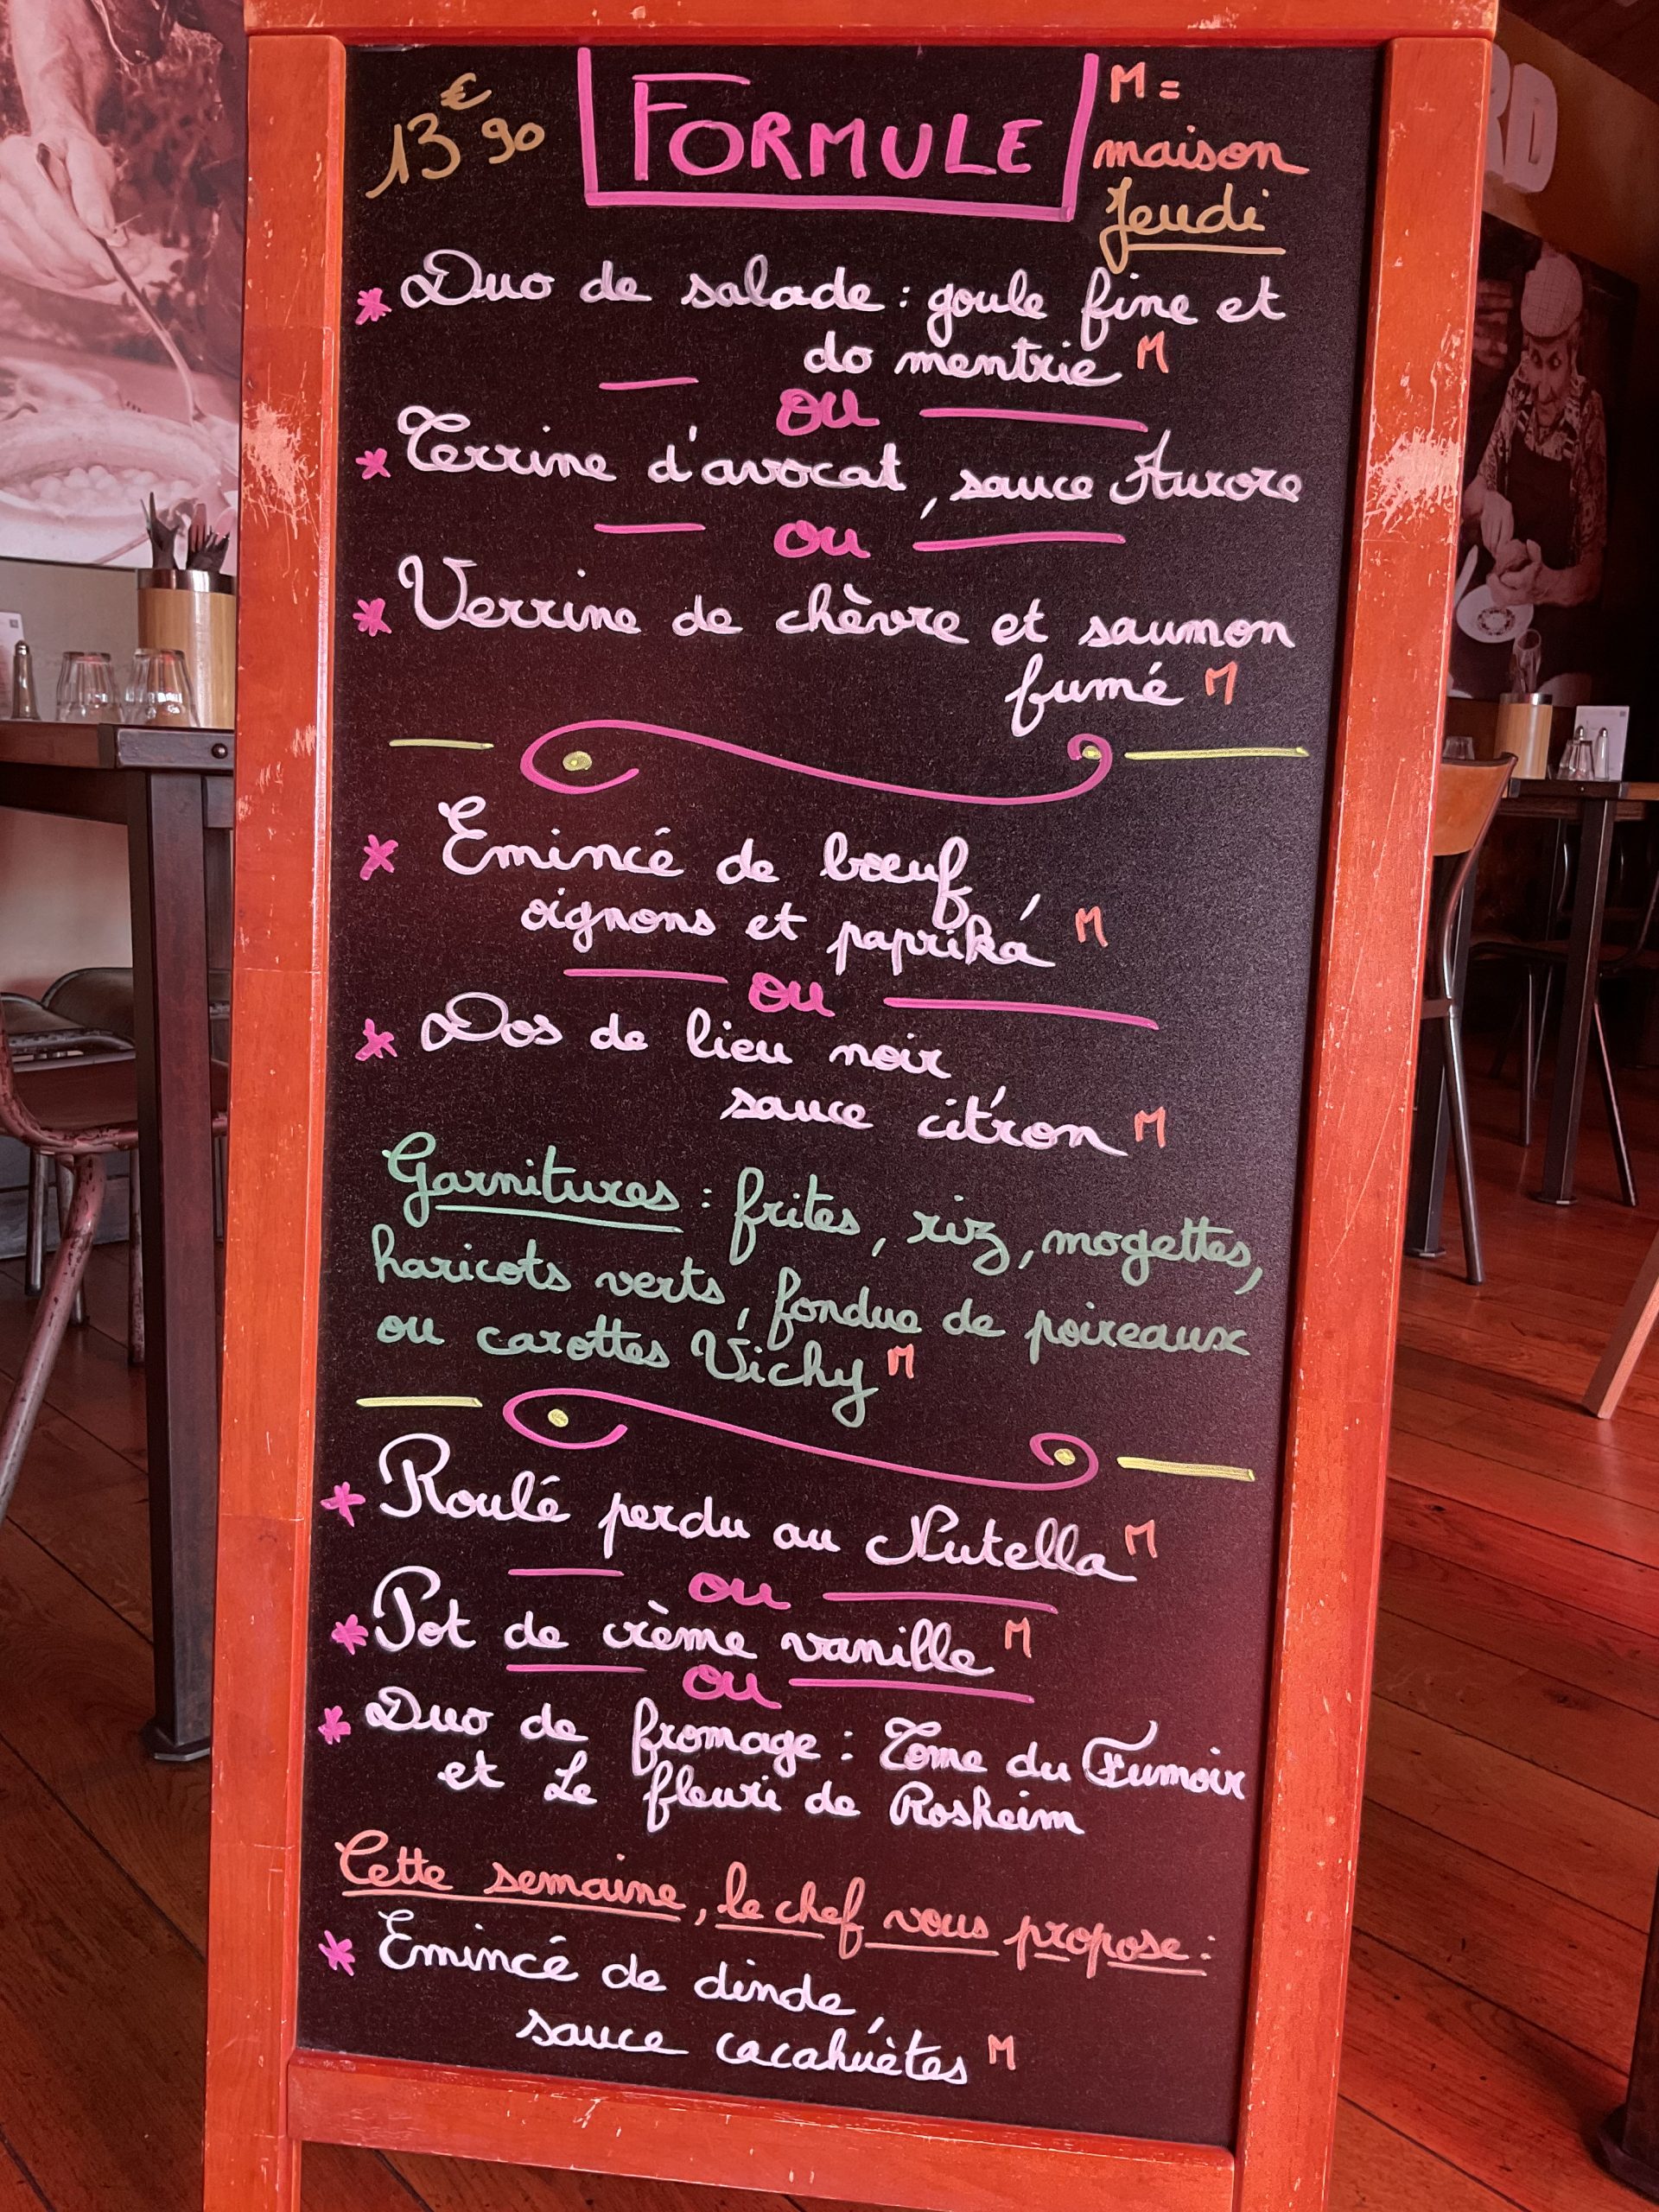 13€90
FORMULE
M =
maison
Jeudi
* Duo de salade : goule fine et
do mentrie M
— ou —
* Terrine d'avocat, sauce Aurore
— ou —
* Verrine de chèvre et saumon
fumé M
* Emincé de bœuf,
oignons et paprika M
— ou —
* Dos de lieu noir
sauce citron M
Garnitures : frites, riz, mogettes,
haricots verts, fondue de poireaux
ou carottes Vichy M
* Roulé perdu au Nutella M
— ou —
* Pot de crème vanille M
— ou —
* Duo de fromage : Tome du Fumoir
et Le fleuri de Rosheim
Cette semaine, le chef vous propose :
* Emincé de dinde,
sauce cacahuètes M